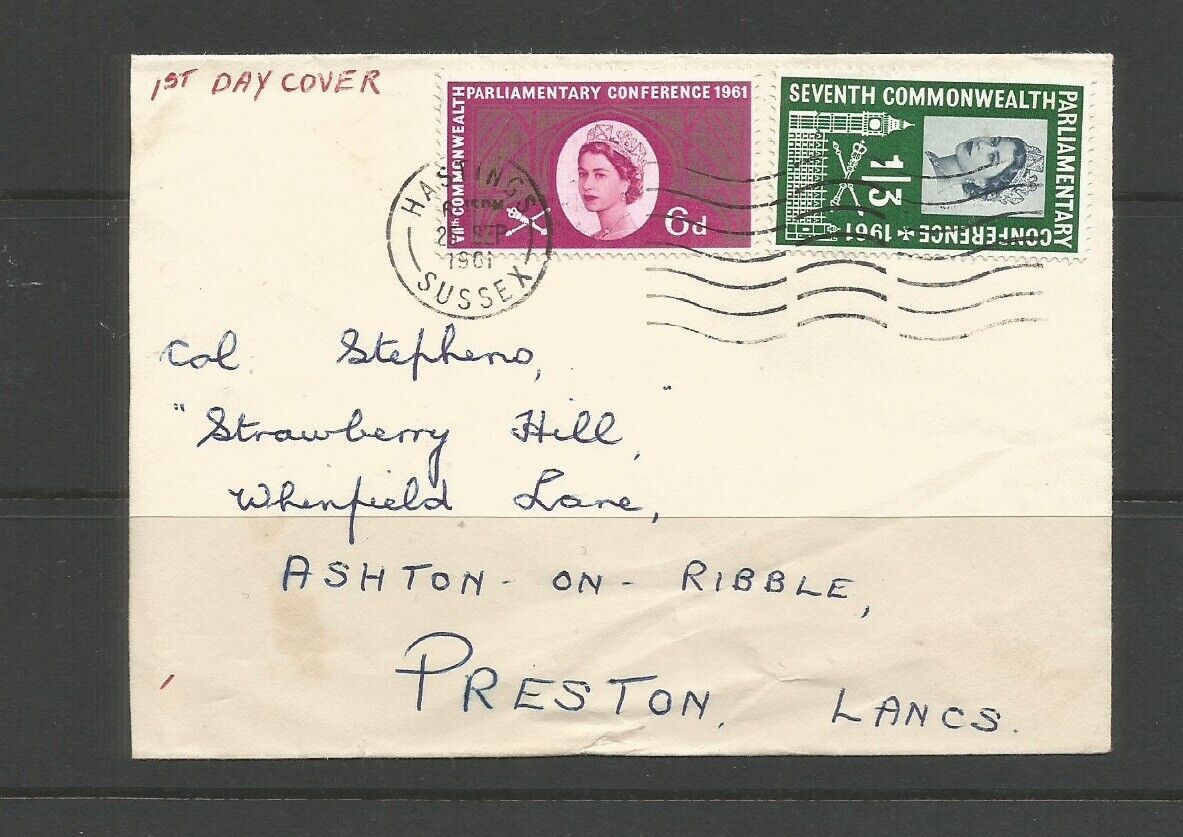 1ST DAY COVER
VIIth COMMONWEALTH
PARLIAMENTARY CONFERENCE 1961
6d
SEVENTH COMMONWEALTH
PARLIAMENTARY
CONFERENCE ✠ 1961
1/3
HASTINGS
SEP
1961
SUSSEX
Col. Stephens,
"Strawberry Hill,"
Whinfield Lane,
ASHTON - ON - RIBBLE,
PRESTON, LANCS.